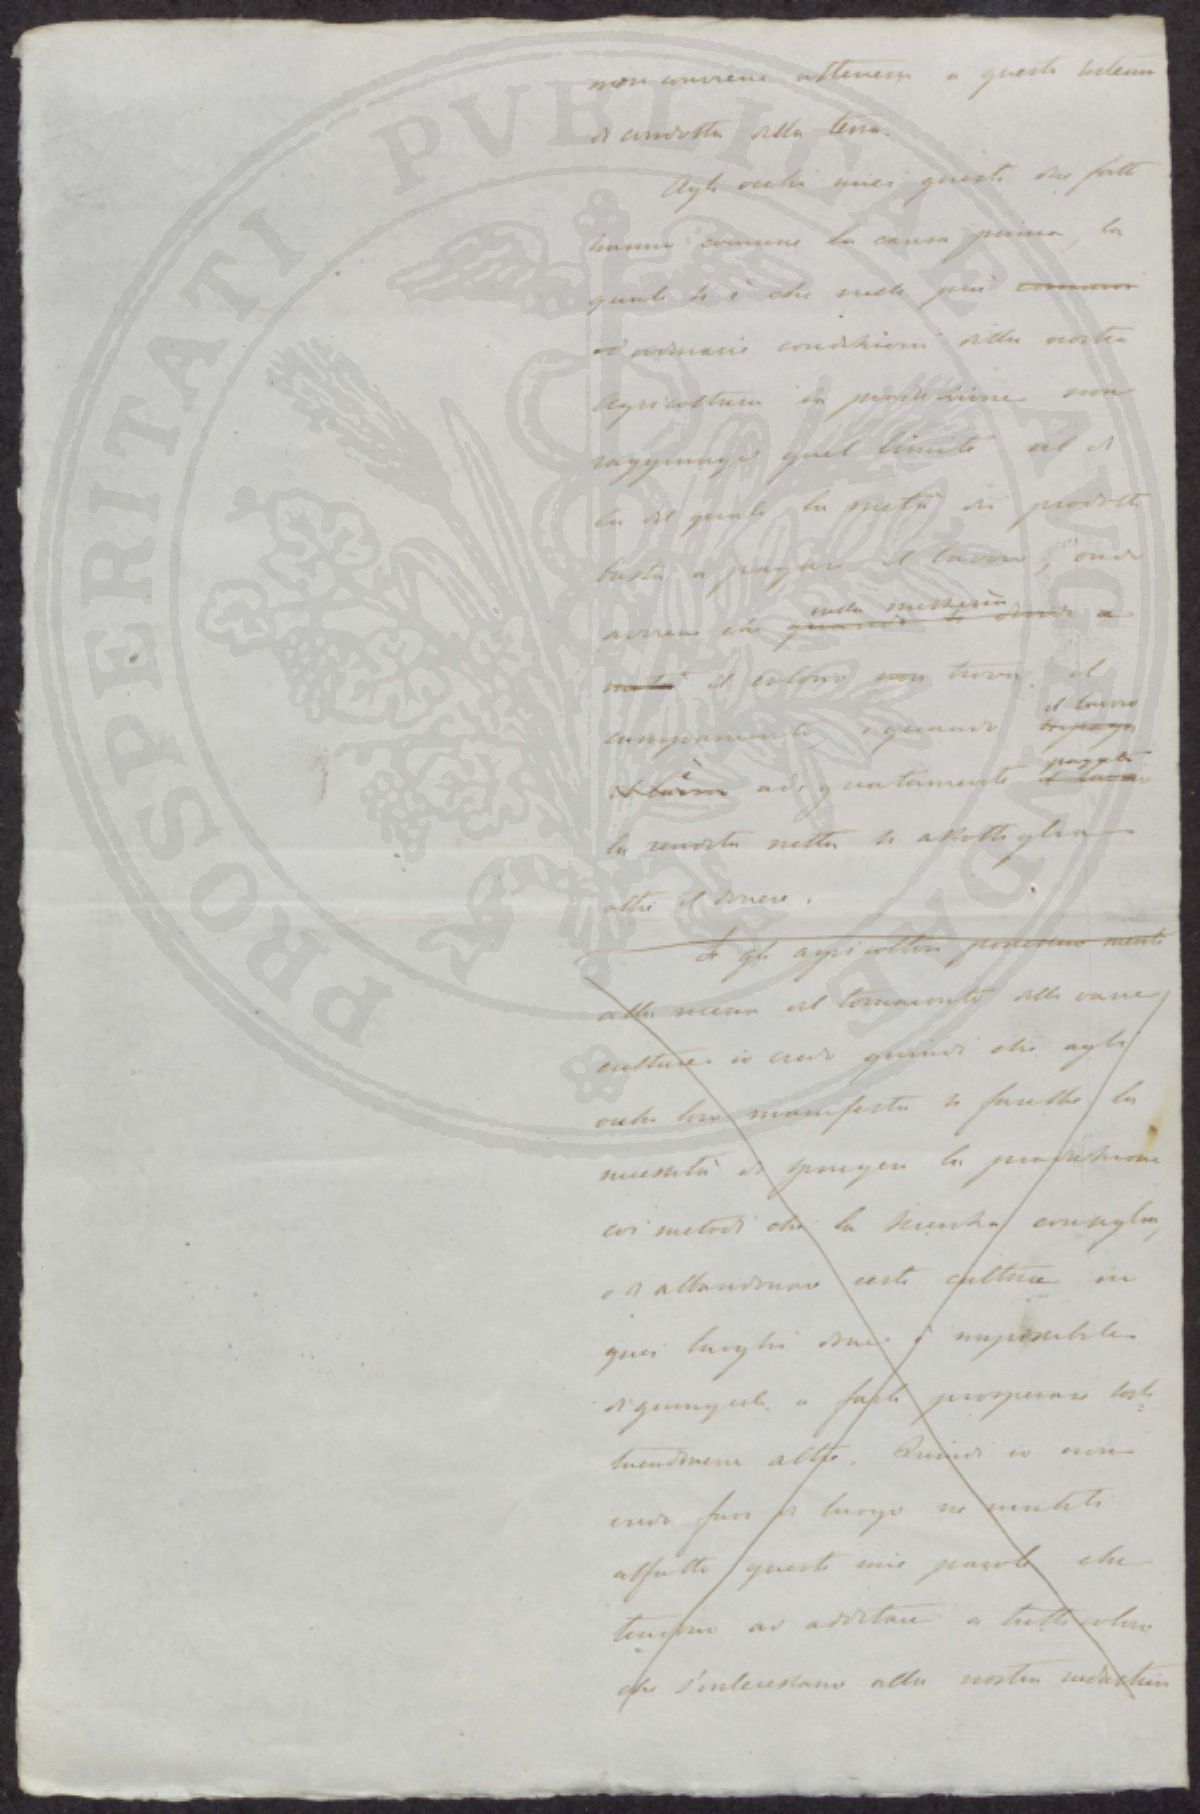 non conviene attenersi a questo sistema
di condotta della terra.
Agli occhi miei questi due fatti
hanno comune la causa prima, la
quale si è che nelle più comuni
ed ordinarie condizioni della nostra
Agricoltura la produzione non
raggiunge quel limite al di
là del quale la metà dei prodotti
basta a pagare il lavoro, onde
avviene che nella mezzeria quando si divide a
metà il colono non trova il
compiamento, e quando il lavoro si paga
è adeguatamente pagato il lavoro
la rendita netta si assottiglia
oltre il dovere.
Se gli agricoltori ponessero mente
alla mena del tornaconto delle varie
culture io credo quindi che agli
occhi loro manifesta si farebbe la
necessità di spingere la produzione
coi metodi che la scienza consiglia,
e di abbandonare certe culture in
quei luoghi dove è impossibile
di giungere a farle prosperare sosti=
tuendovene altre. Quindi io non
credo fuor di luogo nè inutili
affatto queste mie parole che
tendono ad additare a tutti coloro
che s'interessano alla nostra industria
PROSPERITATI PVBLICAE AVGENDAE